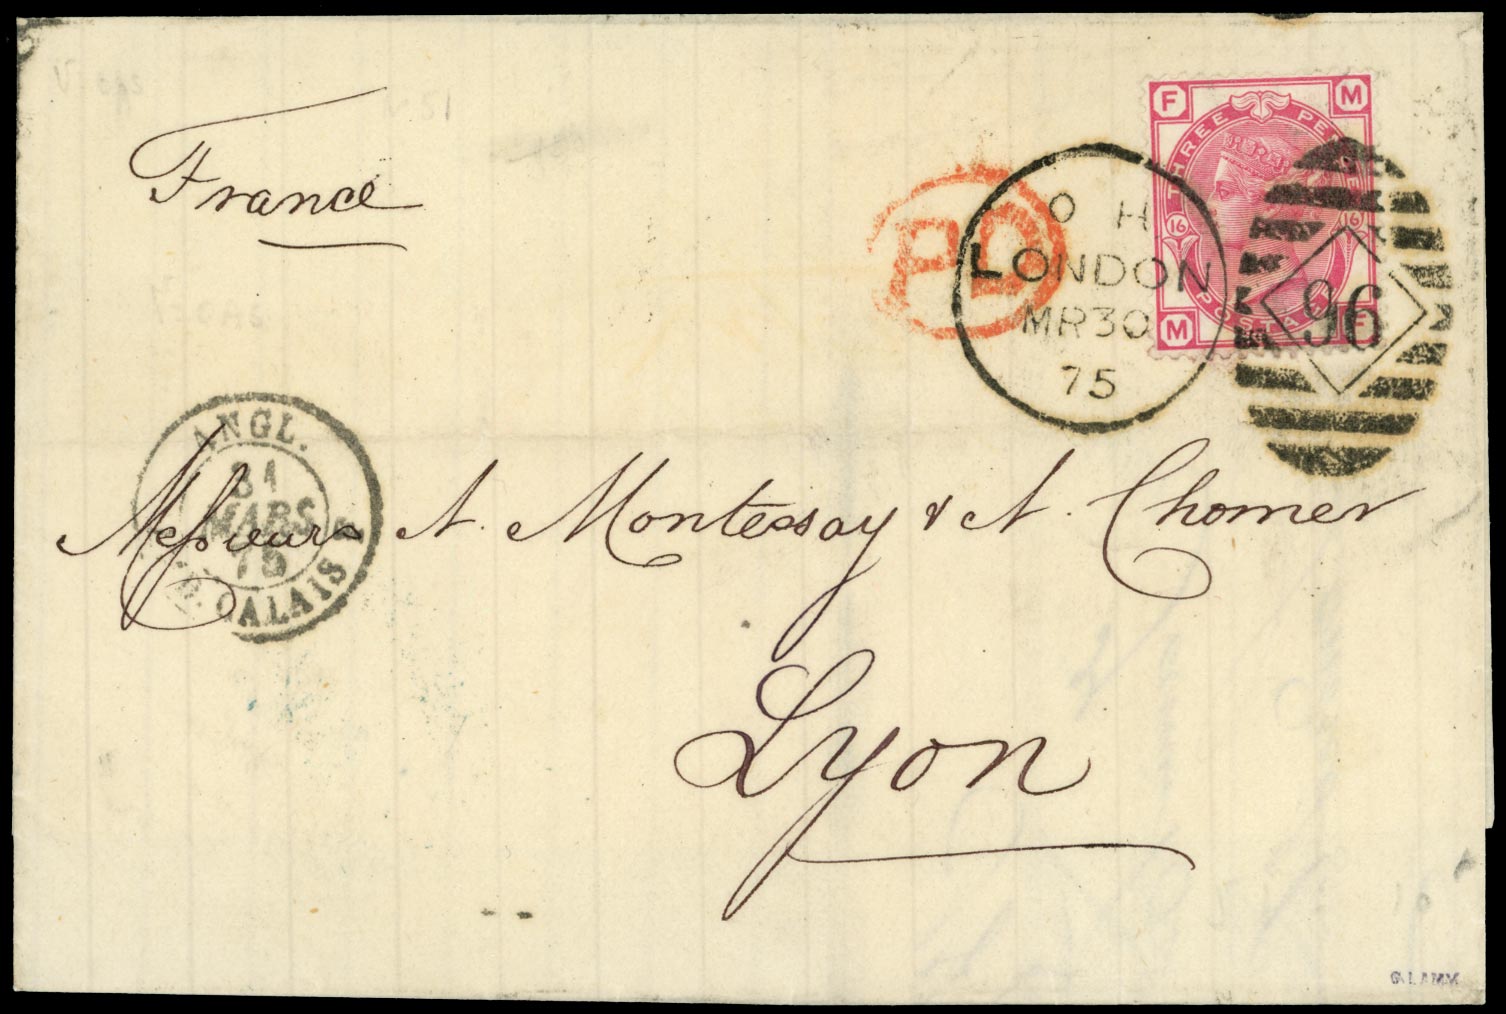 France
F M
THREE PENCE
16 16
POSTAGE
M F
PD
O H
LONDON
MR30
75
96
ANGL.
31
MARS
75
CALAIS
Messieurs A. Montessay & A. Chomer
Lyon